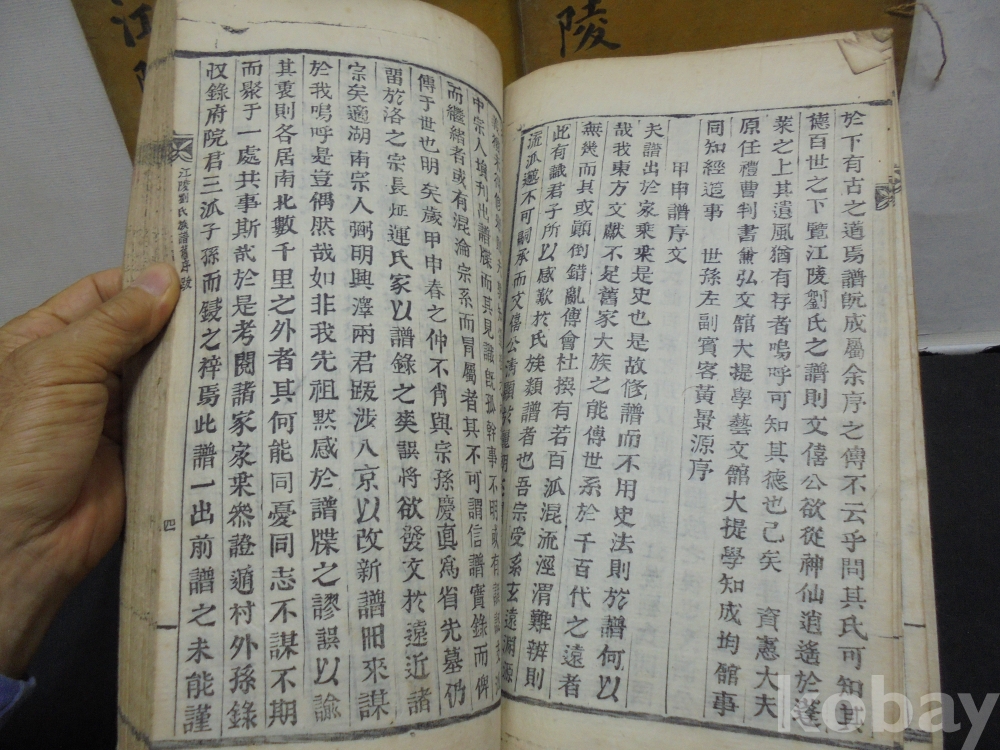 於下有古之道焉譜旣成屬余序之傳不云乎問其氏可知其
德百世之下覽江陵劉氏之譜則文僖公欲從神仙逍遙於蓬
萊之上其遺風猶有存者嗚呼可知其德也已矣 資憲大夫
原任禮曹判書兼弘文舘大提學藝文舘大提學知成均舘事
同知經筵事 世孫左副賓客黃景源序
甲申譜序文
夫譜出於家乘乘是史也是故修譜而不用史法則於譜何以
哉我東方文獻不足舊家大族之能傳世系於千百代之遠者
無幾而其或顚倒錯亂傅會杜撰有若百派混流涇渭難辨則
此有識君子所以感歎於氏族類譜者也吾宗受系玄遠淵源
流派邈不可詞承而文僖公
中宗人塡刋出譜牒而其見識旣孤幹事不明或有
而繼緖者或有混淪宗系而冐屬者其不可謂信譜實錄而俾
傳于世也明矣歲甲申春之仲不肖與宗孫慶眞爲省先墓仍
留於洛之宗長炡運氏家以譜錄之爽誤將欲發文於遠近諸
宗矣適湖南宗人弼明興澤兩君跋涉入京以改新譜冊來謀
於我嗚呼是豈偶然哉如非我先祖默感於譜牒之謬誤以諭
其衷則各居南北數千里之外者其何能同憂同志不謀不期
而聚于一處共事斯哉於是考閱諸家家乘叅證遍村外孫錄
収錄府院君三派子孫而鋟之梓焉此譜一出前譜之未能謹
江陵劉氏族譜舊序
四
江
陵
kobay